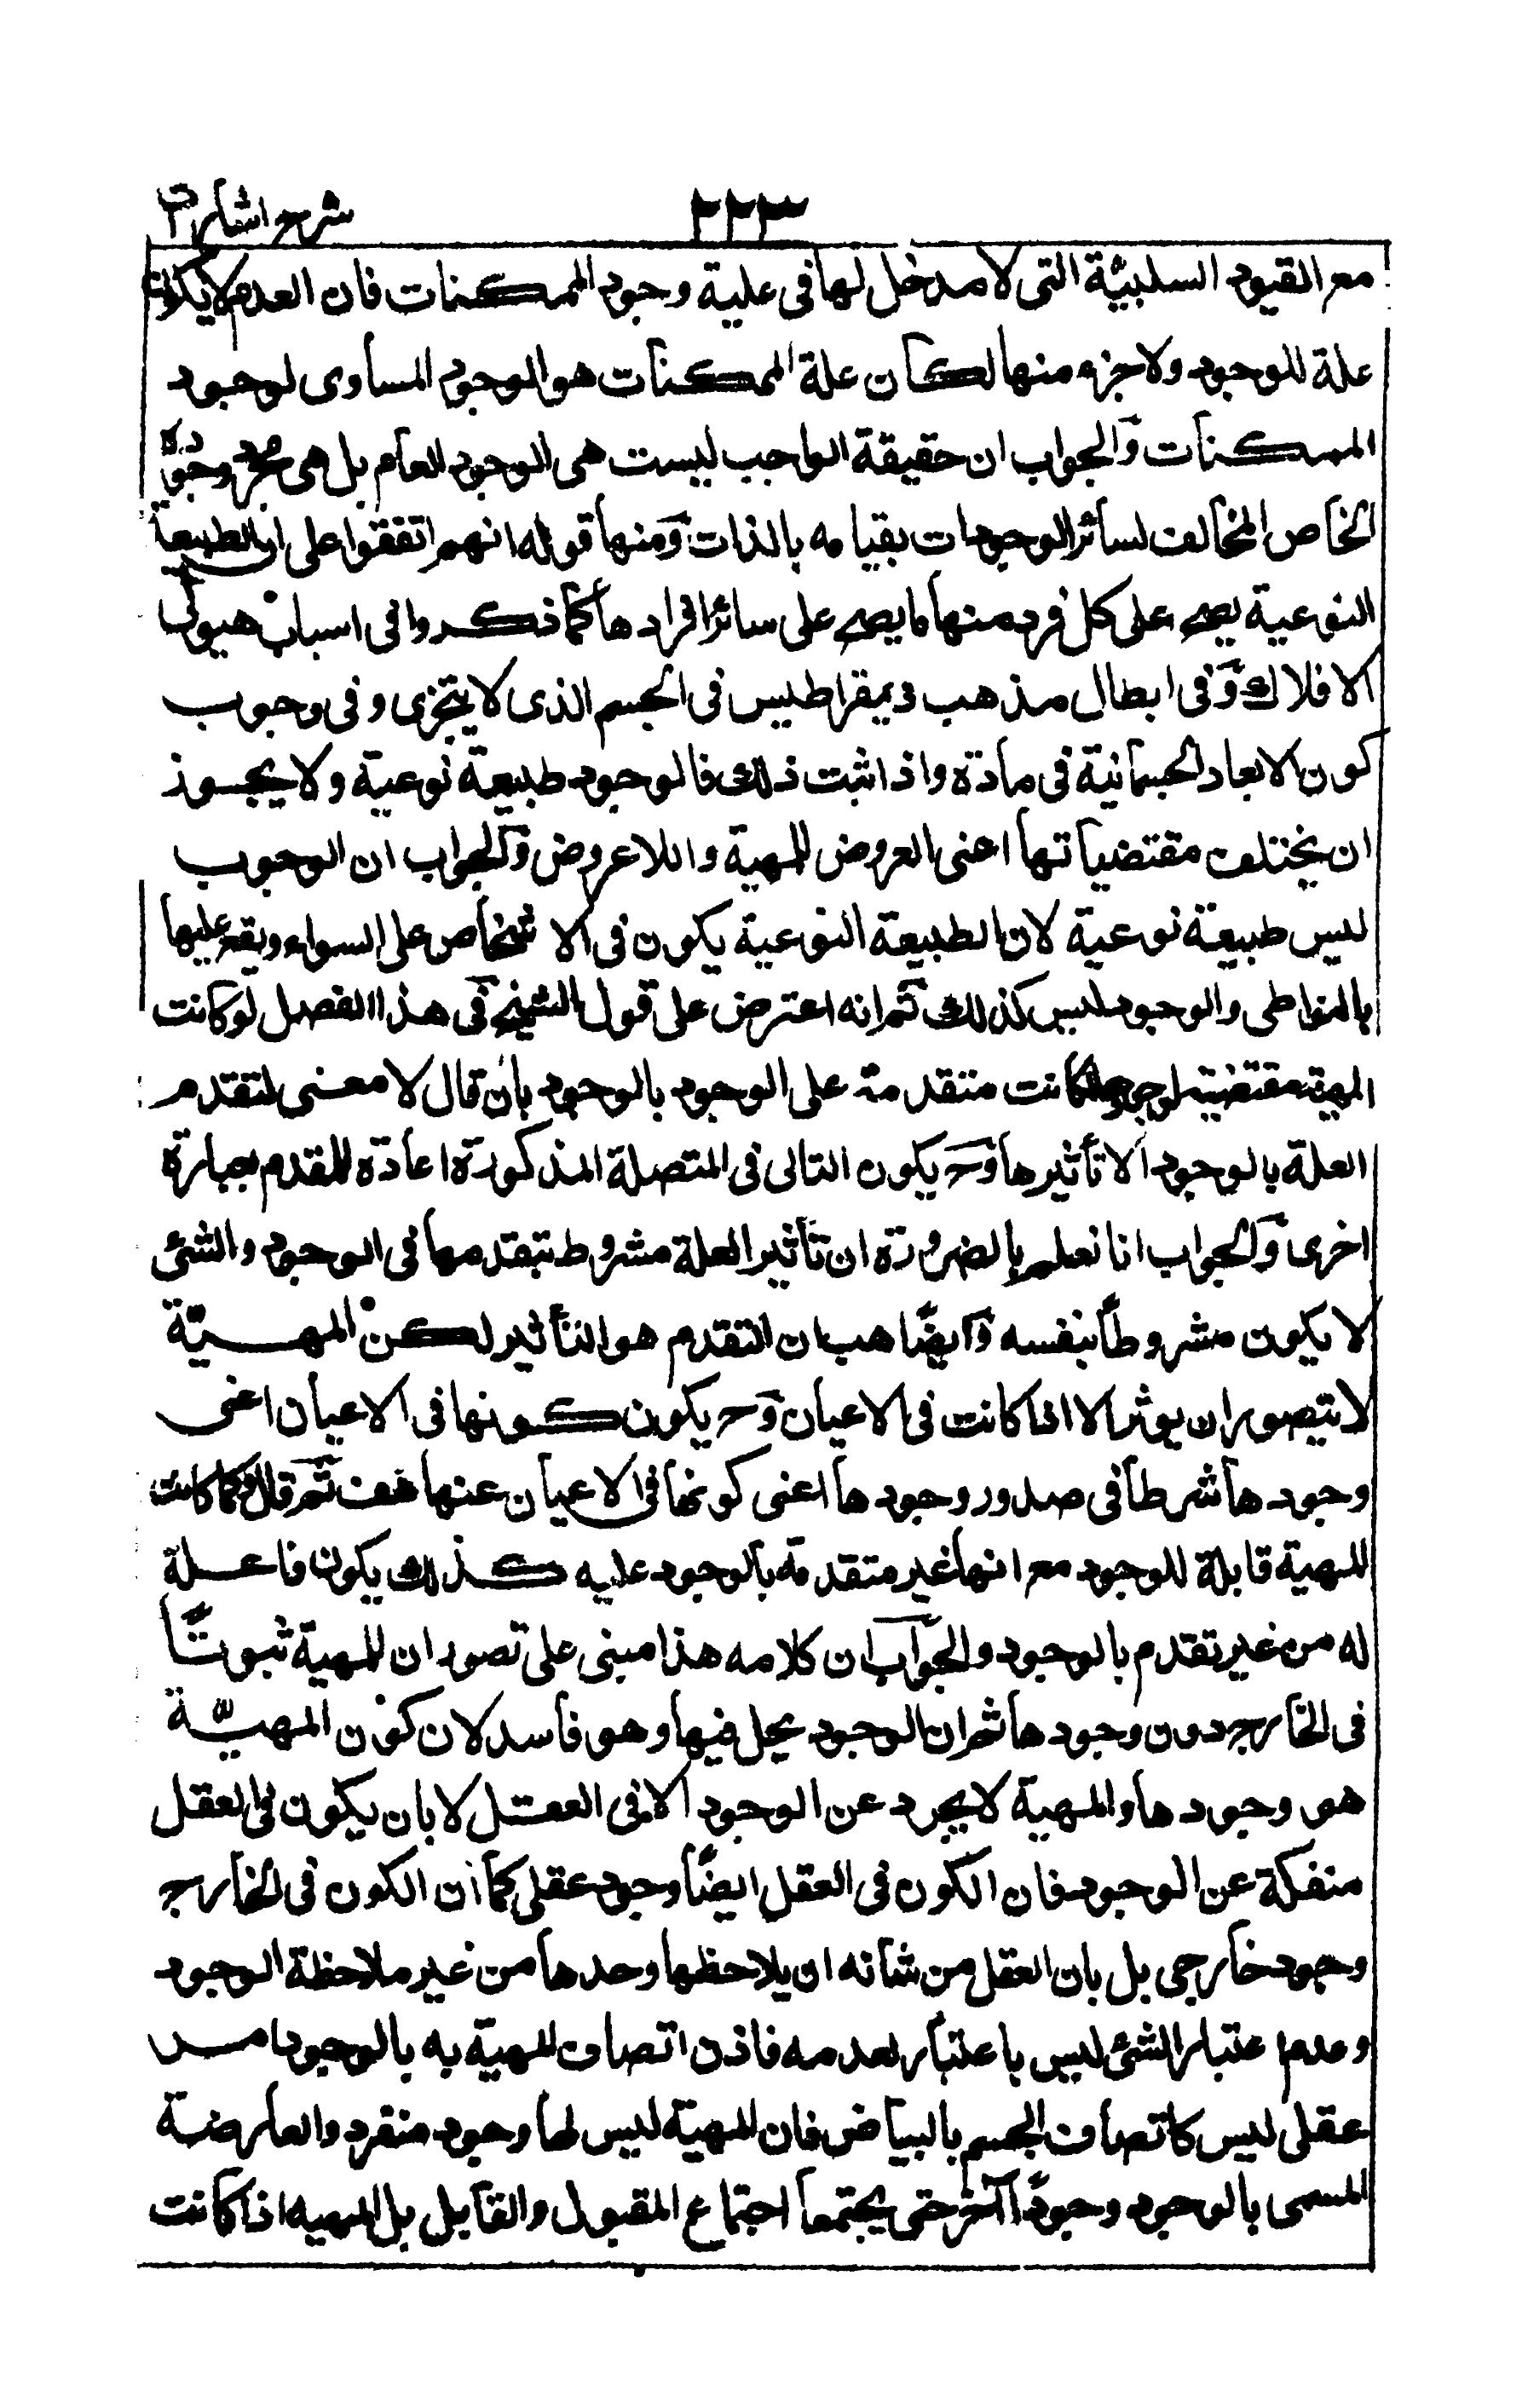 شرح اشارات
٢٢٣
مع القيود السلبيّة التى لا مدخل لها فى علية وجود الممكنات فان العدم لا يكون
علة للوجود ولا جزء منها لكان علة الممكنات هو الوجود المساوى لوجود
الممكنات وٓالجواب ان حقيقة الواجب ليست هى الوجود العام بل هى مجرد وجوده
الخاص المخالف لسائر الوجودات بقيامه بالذات وٓمنها قوله انهم اتفقوا على ان الطبيعة
النوعية يصح على كل فرد منها ما يصح على سائر افرادها كما ذكروا فى اسباب هيولى
الافلاك وٓفى ابطال مذهب ديمقراطيس فى الجسم الذى لا يتجزى وفى وجوب
كون الابعاد الجسمانية فى مادة واذا ثبت ذلك فالوجود طبيعة نوعية ولا يجوز
ان يختلف مقتضياتها اعنى العروض للمهية واللاعروض وٓالجواب ان الوجوب
ليس طبيعة نوعية لان الطبيعة النوعية يكون فى الاشخاص على السواء ويقع عليها
بالتواطى والوجود ليس كذلك ثم انه اعترض على قول الشيخ فى هذا الفصل لو كانت
المهية مقتضية لوجودها لكانت متقدمة على الوجود بالوجود بان قال لا معنى لتقدم
العلة بالوجود الا تأثيرها وٓح يكون التالى فى المتصلة المذكورة اعادة للمقدم بعبارة
اخرى وٓالجواب انا نعلم بالضرورة ان تأثير العلة مشروط بتقدمها فى الوجود والشئ
لا يكون مشروطاً بنفسه وٓايضًا هب ان التقدم هو التأثير لكن المهيّة
لا يتصور ان يوثر الا اذا كانت فى الاعيان وٓح يكون كونها فى الاعيان اعنى
وجودها شرطا فى صدور وجودها اعنى كونها فى الاعيان عنها هف ثم قال وكما كانت
المهية قابلة للوجود مع انها غير متقدمة بالوجود عليه كذلك يكون فاعلة
له من غير تقدم بالوجود والجواب ان كلامه هذا مبنى على تصور ان للمهية ثبوتًا
فى الخارج دون وجودها ثم ان الوجود يحل فيها وهو فاسد لان كون المهيّة
هو وجودها والمهية لا يجرد عن الوجود الا فى العقل لا بان يكون فى العقل
منفكة عن الوجود فان الكون فى العقل ايضًا وجود عقلى كما ان الكون فى الخارج
وجود خارجى بل بان العقل من شانه ان يلاحظها وحدها من غير ملاحظة الوجود
وعدم اعتبار الشئ ليس باعتبار لعدمه فاذن اتصاف المهية به بالوجود امر
عقلى ليس كاتصاف الجسم بالبياض فان المهية ليس لها وجود منفرد والعارضة
المسمى بالوجود وجودًا آخر حتى يجتمعا اجتماع المقبول والقابل بل المهيه اذا كانت